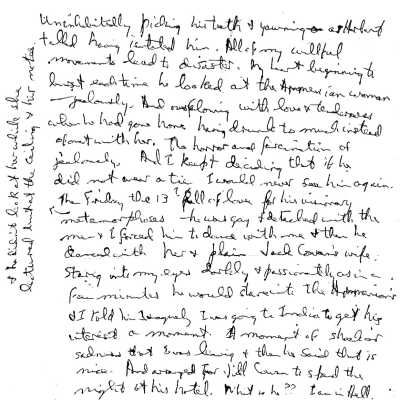 Uninhibitedly picking his teeth & yawning as Herbert
talked having invited him. All of my willful
movements lead to disaster. My heart beginning to
burst each time he looked at the Armenian woman
- jealously. And overflowing with love & tenderness
when he had gone home having drunk too much instead
of out with her. The horror and fascination of
jealousy. And I kept deciding that if he
did not wear a tie I would never see him again.
The Friday the 13th full of love for his visionary
metamorphoses - he was gay & detached with the
me - & I forced him to dance with me & then he
danced with her & plain Jack Cowan's wife.
Staring into my eyes darkly & passionately as in a
few minutes he would dare into the Armenian's
& I told him I was going to India to get his
interest a moment. A moment of
sadness that I was leaving & then he said that is
nice. And arranged for Jill Cowan to spend the
night at his hotel. What is he?? I am in Hell.
& he didn't look at her while she
listened but at the ceiling & her notes.